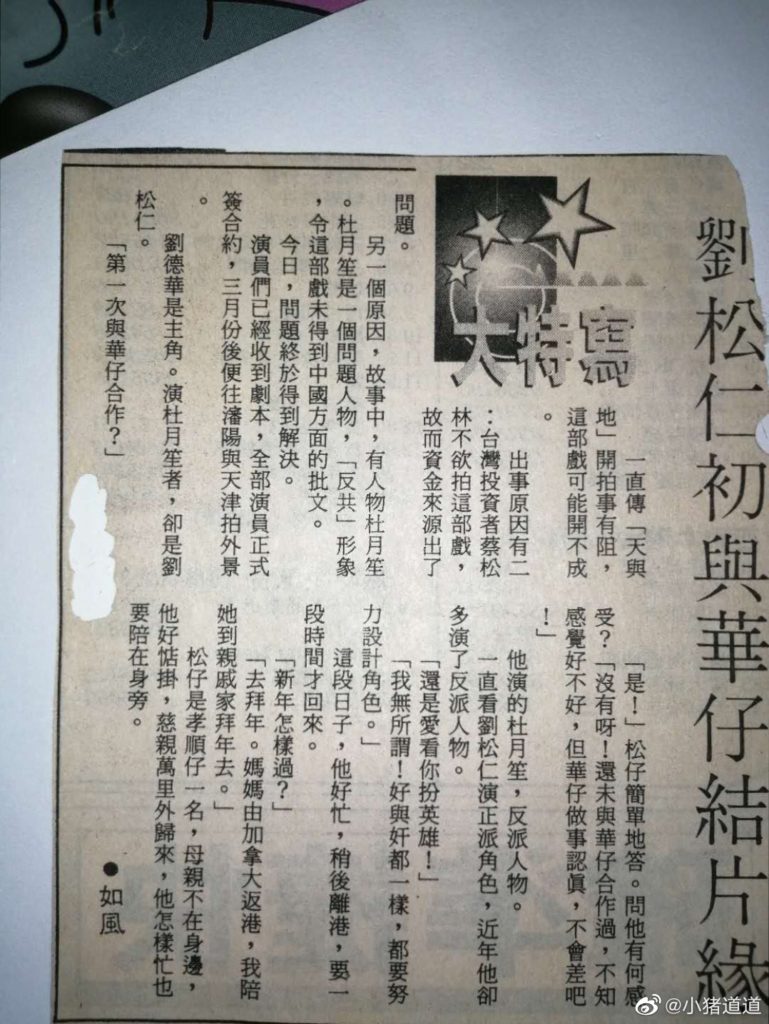 劉松仁初與華仔結片緣
大特寫
一直傳「天與
地」開拍事有阻，
這部戲可能開不成
。
出事原因有二
：台灣投資者蔡松
林不欲拍這部戲，
故而資金來源出了
問題。
另一個原因，故事中，有人物杜月笙
。杜月笙是一個問題人物，「反共」形象
，令這部戲未得到中國方面的批文。
今日，問題終於得到解決。
演員們已經收到劇本，全部演員正式
簽合約，三月份後便往瀋陽與天津拍外景
。
劉德華是主角。演杜月笙者，卻是劉
松仁。
「第一次與華仔合作？」
「是！」松仔簡單地答。問他有何感
受？「沒有呀！還未與華仔合作過，不知
感覺好不好，但華仔做事認真，不會差吧
！」
他演的杜月笙，反派人物。
一直看劉松仁演正派角色，近年他卻
多演了反派人物。
「還是愛看你扮英雄！」
「我無所謂！好與奸都一樣，都要努
力設計角色。」
這段日子，他好忙，稍後離港，要一
段時間才回來。
「新年怎樣過？」
「去拜年。媽媽由加拿大返港，我陪
她到親戚家拜年去。」
松仔是孝順仔一名，母親不在身邊，
他好惦掛，慈親萬里外歸來，他怎樣忙也
要陪在身旁。
●如風
@小猪道道